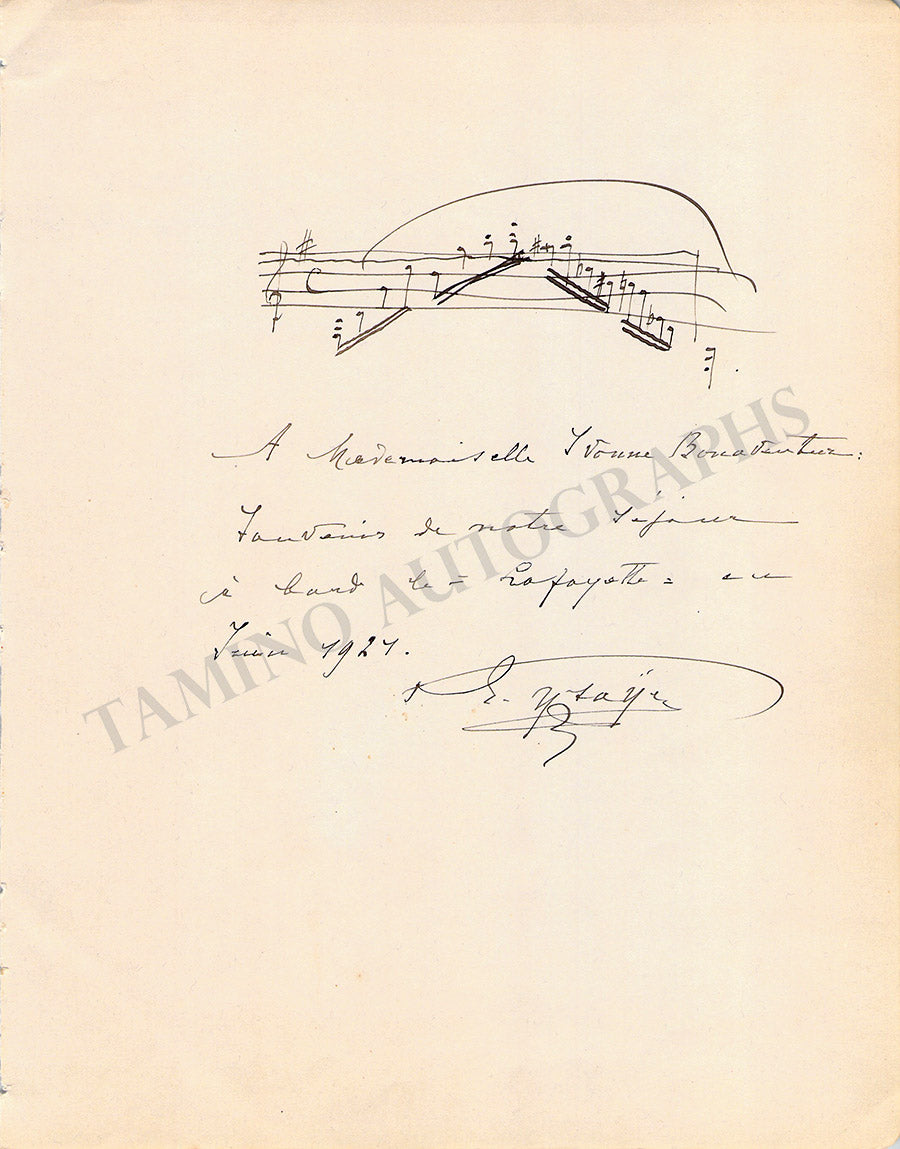 A Mademoiselle Yvonne Bonaventure:
Souvenir de notre séjour
à bord le = Lafayette = en
Juin 1921.
E. Ysaÿe
TAMINO AUTOGRAPHS